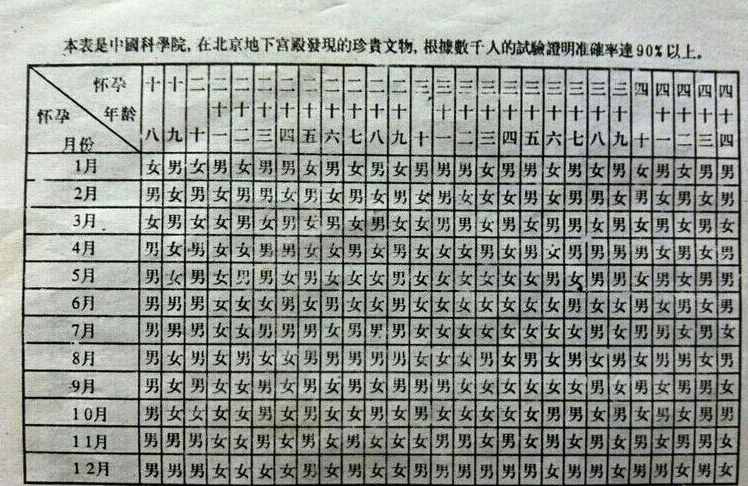 本表是中國科學院,在北京地下宮殿發現的珍貴文物,根據數千人的試驗證明准確率達90%以上。
怀孕年龄 十八 十九 二十 二十一 二十二 二十三 二十四 二十五 二十六 二十七 二十八 二十九 三十 三十一 三十二 三十三 三十四 三十五 三十六 三十七 三十八 三十九 四十 四十一 四十二 四十三 四十四
怀孕月份
1月 女 男 女 男 女 男 男 女 男 女 男 女 男 男 男 女 男 男 女 男 女 男 女 男 女 男 男
2月 男 女 男 女 男 男 女 男 女 男 女 男 女 男 女 女 女 男 女 男 男 女 男 女 男 女 男
3月 女 男 女 男 女 女 男 女 男 女 男 女 女 男 男 女 男 女 男 男 女 男 女 男 女 男 女
4月 男 女 男 女 女 男 男 女 女 男 女 男 女 女 女 男 女 男 女 男 男 男 男 女 男 女 男
5月 男 女 男 女 男 男 女 男 女 女 女 男 女 女 女 女 女 女 男 女 男 男 女 男 女 男 男
6月 男 男 男 女 女 女 男 女 男 女 女 男 女 女 女 女 女 女 女 男 女 女 男 女 男 女 男
7月 男 男 男 女 女 男 男 男 女 男 男 男 女 女 女 女 女 女 女 女 男 女 男 男 女 男 女
8月 男 女 男 女 男 女 女 男 男 男 男 男 女 女 女 男 女 男 女 男 女 男 女 男 男 女 男
9月 男 女 男 女 女 男 女 男 女 男 女 男 男 男 女 女 女 女 女 女 男 女 男 女 男 男 女
10月 男 女 女 女 女 男 女 男 女 女 男 女 男 女 女 女 女 女 男 男 女 男 女 男 女 男 男
11月 男 男 男 女 女 男 女 男 女 男 女 女 男 男 男 女 男 女 男 女 男 女 男 女 男 男 女
12月 男 男 男 女 女 女 女 男 女 男 女 女 男 男 男 男 男 男 女 男 女 男 男 男 女 男 女